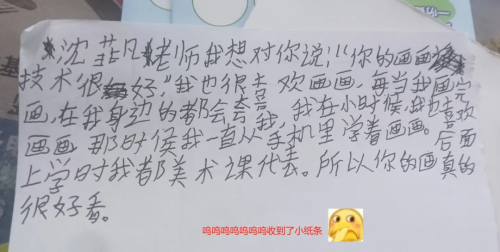 沈菲凡老师我想对你说：“你的画画
技术很好，”我也很喜欢画画，每当我画完
画，在我身边的都会夸我，我在小时候，我也喜欢
画画，那时候我一直从手机里学着画画。后面
上学时我都美术课代表。所以你的画真的
很好看。
呜呜呜呜呜呜呜收到了小纸条